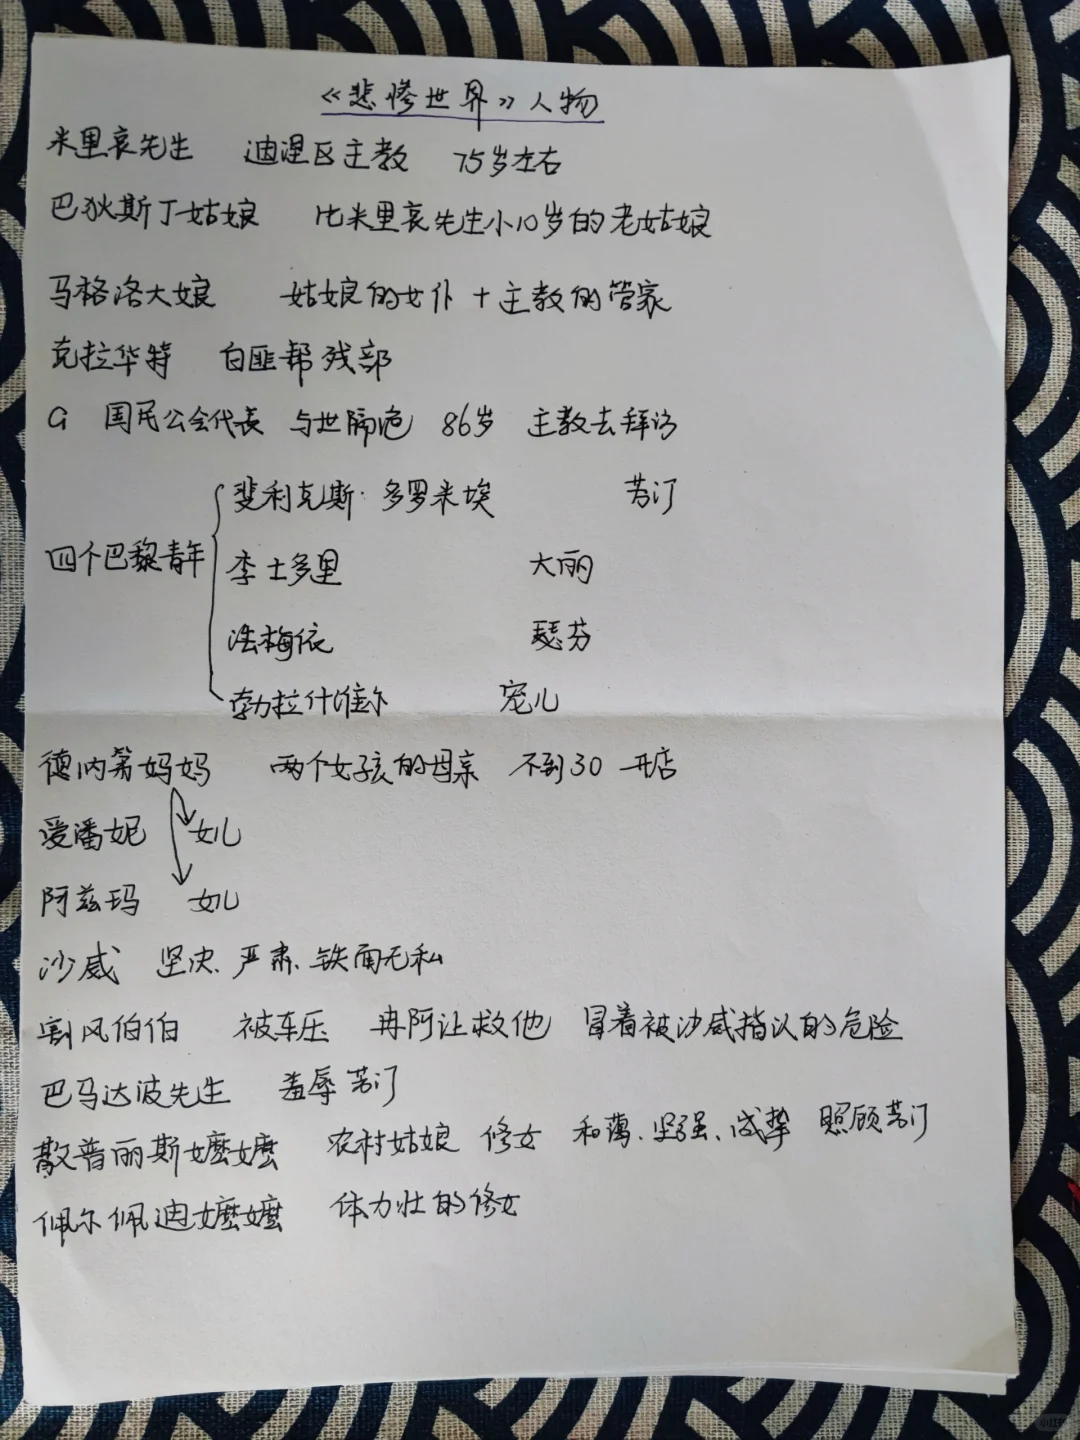 《悲惨世界》人物
米里哀先生 迪涅区主教 75岁左右
巴狄斯丁姑娘 比米里哀先生小10岁的老姑娘
马格洛大娘 姑娘的女仆+主教的管家
克拉华特 白匪帮残部
G 国民公会代表 与世隔绝 86岁 主教去拜访
四个巴黎青年
斐利克斯·多罗米埃 芳汀
李士多里 大丽
法梅依 瑟芬
勃拉什维尔 宠儿
德纳第妈妈 两个女孩的母亲 不到30 开店
爱潘妮 女儿
阿兹玛 女儿
沙威 坚决、严肃、铁面无私
割风伯伯 被车压 冉阿让救他 冒着被沙威指认的危险
巴马达波先生 羞辱芳汀
散普丽斯嬷嬷 农村姑娘 修女 和蔼、坚强、诚挚 照顾芳汀
佩尔佩迪嬷嬷 体力壮的修女